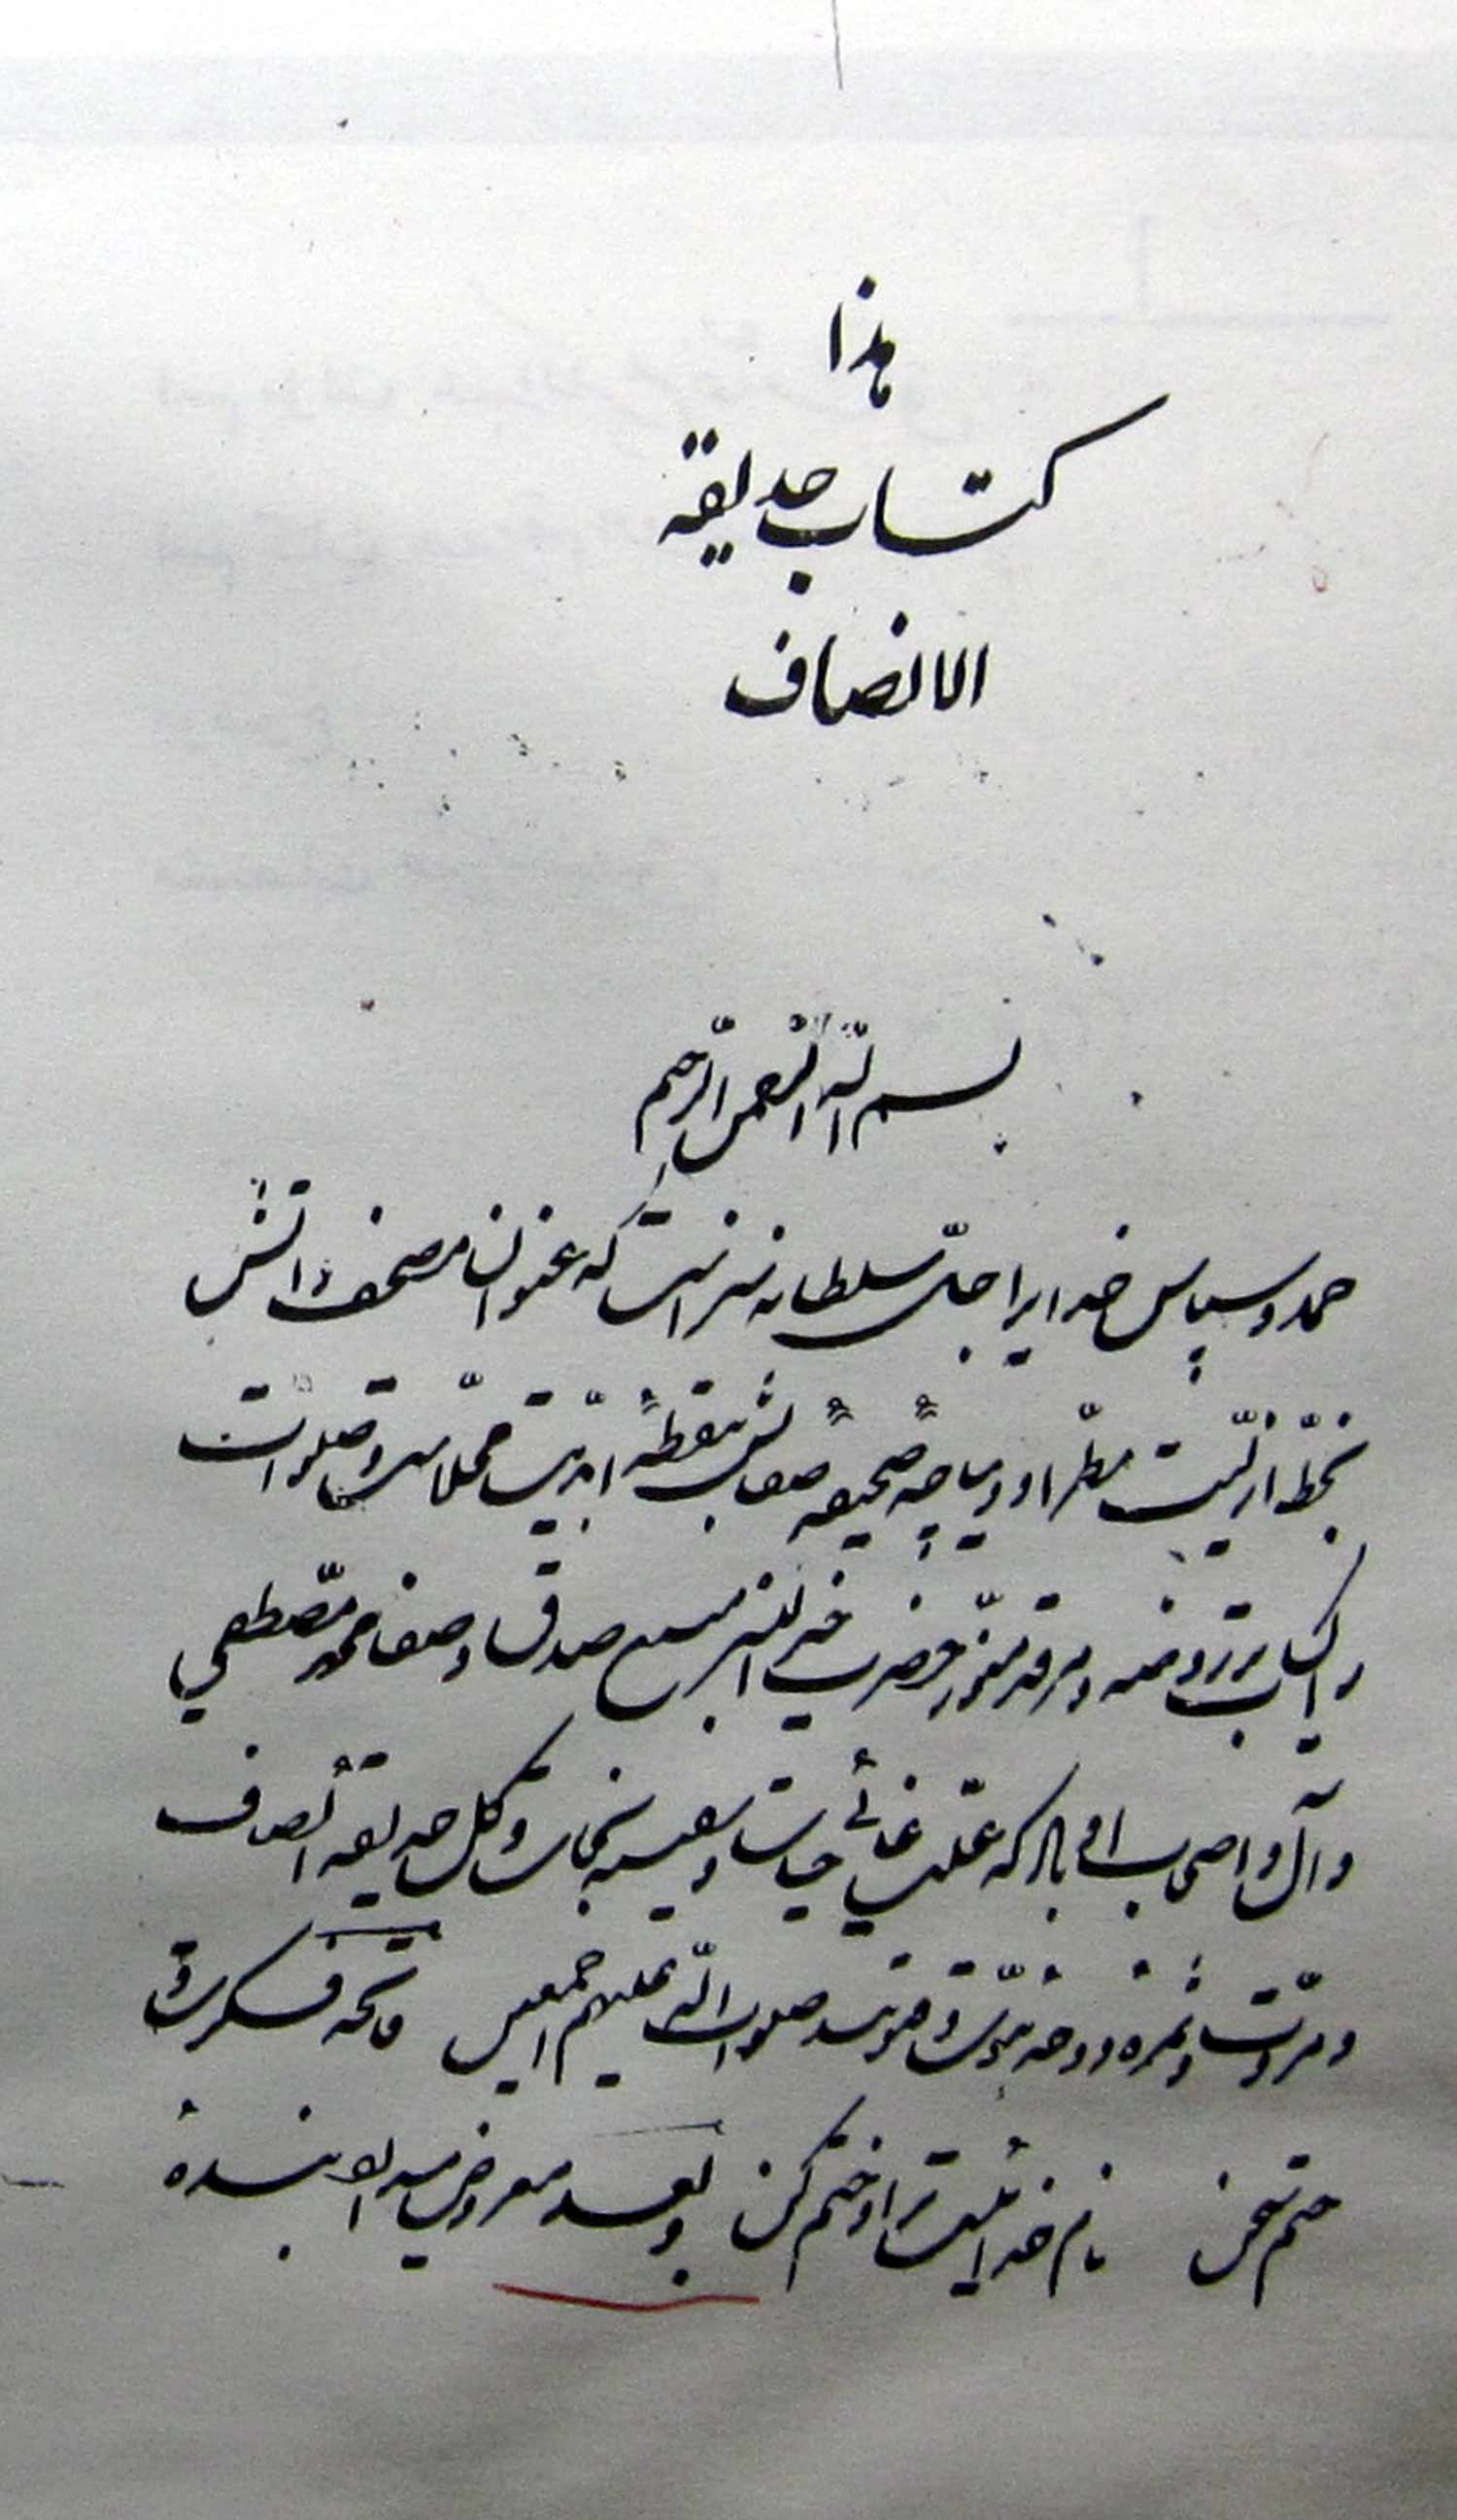 هذا
کتاب حدیقه
الانصاف
بسم الله الرحمن الرحیم
حمد و سپاس خدایرا جلّ سلطانه سزاست که عنوان مصحف ذاتش
بخطّ ازلیّت مطرّا و دیباچهٔ صحیفهٔ صفاتش بنقطهٔ ابدیّت محلّاست و صلوات
زاکیات بر روضه و مرقد منوّر حضرت خیر البشر منبع صدق و صفا محمد مصطفی
و آل و اصحاب او باد که علّت غائی حیات و سفینه نجات و گل حدیقهٔ انصاف
و مروّت و ثمرهٔ دوحه نبوّت و فتوتند صلوات الله علیهم اجمعین فاتحه فکرت و
ختم سخن نام خدایست بر او ختم کن و بعد معروض میدارد بندهٔ